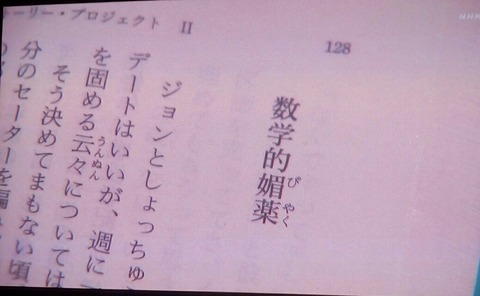 ーリー・プロジェクト II
128
数学的媚薬
びやく
ジョンとしょっちゅ
デートはいいが、週に
を固める云々については
うんぬん
そう決めてまもない頃
分のセーターを編